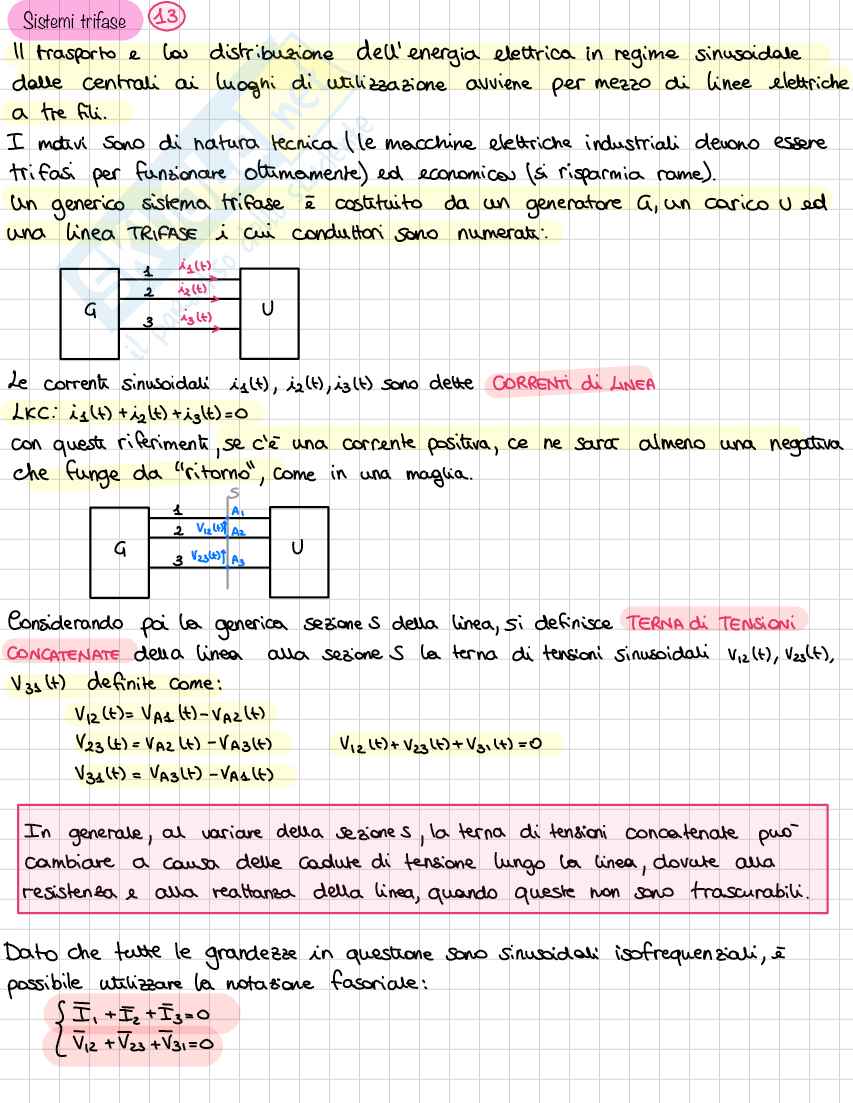 Sistemi trifase 13
Il trasporto e la distribuzione dell'energia elettrica in regime sinusoidale
dalle centrali ai luoghi di utilizzazione avviene per mezzo di linee elettriche
a tre fili.
I motivi sono di natura tecnica (le macchine elettriche industriali devono essere
trifasi per funzionare ottimamente) ed economica (si risparmia rame).
Un generico sistema trifase è costituito da un generatore G, un carico U ed
una linea TRIFASE i cui conduttori sono numerati:
1 i1(t)
2 i2(t)
G U
3 i3(t)
Le correnti sinusoidali i1(t), i2(t), i3(t) sono dette CORRENTI di LINEA
LKC: i1(t) + i2(t) + i3(t) = 0
con questi riferimenti, se c'è una corrente positiva, ce ne sarà almeno una negativa
che funge da "ritorno", come in una maglia.
S
1 A1
2 V12(t) A2
G U
3 V23(t) A3
Considerando poi la generica sezione S della linea, si definisce TERNA di TENSIONI
CONCATENATE della linea alla sezione S la terna di tensioni sinusoidali V12(t), V23(t),
V31(t) definite come:
V12(t) = VA1(t) - VA2(t)
V23(t) = VA2(t) - VA3(t) V12(t) + V23(t) + V31(t) = 0
V31(t) = VA3(t) - VA1(t)
In generale, al variare della sezione S, la terna di tensioni concatenate può
cambiare a causa delle cadute di tensione lungo la linea, dovute alla
resistenza e alla reattanza della linea, quando queste non sono trascurabili.
Dato che tutte le grandezze in questione sono sinusoidali isofrequenziali, è
possibile utilizzare la notazione fasoriale:
{ I̅1 + I̅2 + I̅3 = 0
V̅12 + V̅23 + V̅31 = 0